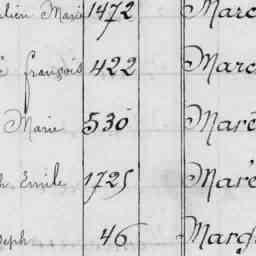 ulien Marie 1472 Marc
é françois 422 Marc
Marie 530 Maré
h Emile 1725 Maré
oseph 46 Marg